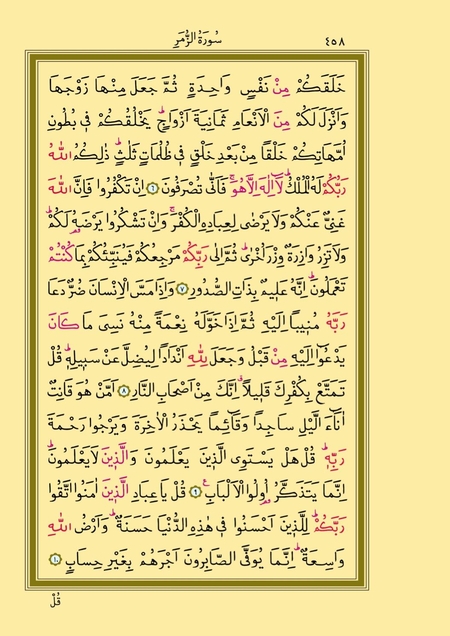 ٤٥٨
سُورَةُ الزُّمَرِ
خَلَقَكُمْ مِنْ نَفْسٍ وَاحِدَةٍ ثُمَّ جَعَلَ مِنْهَا زَوْجَهَا
وَاَنْزَلَ لَكُمْ مِنَ الْاَنْعَامِ ثَمَانِيَةَ اَزْوَاجٍۜ يَخْلُقُكُمْ ف۪ي بُطُونِ
اُمَّهَاتِكُمْ خَلْقًا مِنْ بَعْدِ خَلْقٍ ف۪ي ظُلُمَاتٍ ثَلٰثٍۜ ذٰلِكُمُ اللّٰهُ
رَبُّكُمْ لَهُ الْمُلْكُۜ لَٓا اِلٰهَ اِلَّا هُوَۚ فَاَنّٰى تُصْرَفُونَ ﴿٦﴾ اِنْ تَكْفُرُوا فَاِنَّ اللّٰهَ
غَنِيٌّ عَنْكُمْ وَلَا يَرْضٰى لِعِبَادِهِ الْكُفْرَۚ وَاِنْ تَشْكُرُوا يَرْضَهُ لَكُمْۜ
وَلَا تَزِرُ وَازِرَةٌ وِزْرَ اُخْرٰىۜ ثُمَّ اِلٰى رَبِّكُمْ مَرْجِعُكُمْ فَيُنَبِّئُكُمْ بِمَا كُنْتُمْ
تَعْمَلُونَۜ اِنَّهُ عَل۪يمٌ بِذَاتِ الصُّدُورِ ﴿٧﴾ وَاِذَا مَسَّ الْاِنْسَانَ ضُرٌّ دَعَا
رَبَّهُ مُن۪يبًا اِلَيْهِ ثُمَّ اِذَا خَوَّلَهُ نِعْمَةً مِنْهُ نَسِيَ مَا كَانَ
يَدْعُٓوا اِلَيْهِ مِنْ قَبْلُ وَجَعَلَ لِلّٰهِ اَنْدَادًا لِيُضِلَّ عَنْ سَب۪يلِه۪ۜ قُلْ
تَمَتَّعْ بِكُفْرِكَ قَل۪يلًاۗ اِنَّكَ مِنْ اَصْحَابِ النَّارِ ﴿٨﴾ اَمَّنْ هُوَ قَانِتٌ
اٰنَٓاءَ الَّيْلِ سَاجِدًا وَقَٓائِمًا يَحْذَرُ الْاٰخِرَةَ وَيَرْجُوا رَحْمَةَ
رَبِّه۪ۜ قُلْ هَلْ يَسْتَوِي الَّذ۪ينَ يَعْلَمُونَ وَالَّذ۪ينَ لَا يَعْلَمُونَۜ
اِنَّمَا يَتَذَكَّرُ اُو۬لُوا الْاَلْبَابِ۟ ﴿٩﴾ قُلْ يَا عِبَادِ الَّذ۪ينَ اٰمَنُوا اتَّقُوا
رَبَّكُمْۜ لِلَّذ۪ينَ اَحْسَنُوا ف۪ي هٰذِهِ الدُّنْيَا حَسَنَةٌۜ وَاَرْضُ اللّٰهِ
وَاسِعَةٌۜ اِنَّمَا يُوَفَّى الصَّابِرُونَ اَجْرَهُمْ بِغَيْرِ حِسَابٍ ﴿١٠﴾
قُلْ